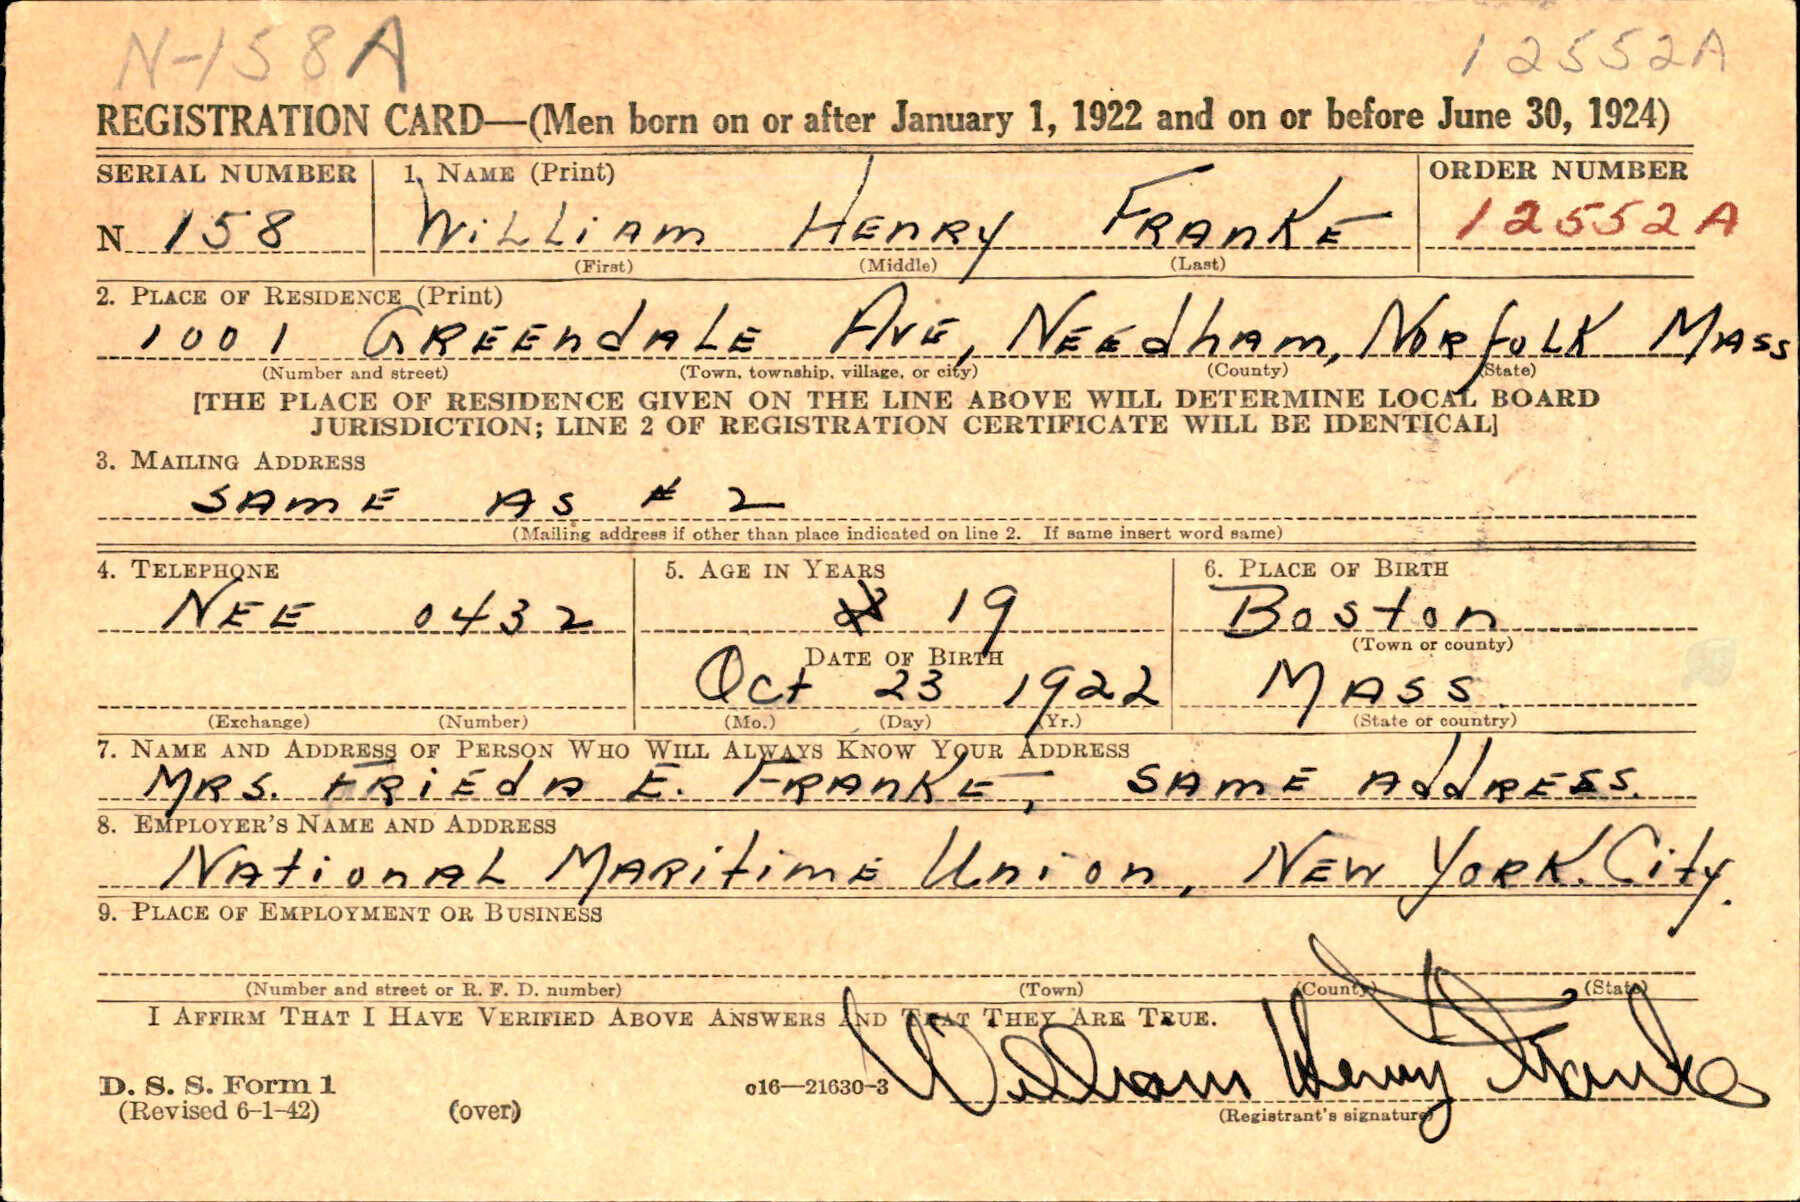 N-158A 12552A
REGISTRATION CARD—(Men born on or after January 1, 1922 and on or before June 30, 1924)
SERIAL NUMBER 1. NAME (Print) ORDER NUMBER
N 158 WILLIAM HENRY FRANKE 12552A
(First) (Middle) (Last)
2. PLACE OF RESIDENCE (Print)
1001 GREENDALE AVE, NEEDHAM, NORFOLK MASS
(Number and street) (Town, township, village, or city) (County) (State)
[THE PLACE OF RESIDENCE GIVEN ON THE LINE ABOVE WILL DETERMINE LOCAL BOARD
JURISDICTION; LINE 2 OF REGISTRATION CERTIFICATE WILL BE IDENTICAL]
3. MAILING ADDRESS
SAME AS # 2
(Mailing address if other than place indicated on line 2. If same insert word same)
4. TELEPHONE 5. AGE IN YEARS 6. PLACE OF BIRTH
NEE 0432 19 Boston
DATE OF BIRTH (Town or county)
Oct 23 1922 MASS.
(Exchange) (Number) (Mo.) (Day) (Yr.) (State or country)
7. NAME AND ADDRESS OF PERSON WHO WILL ALWAYS KNOW YOUR ADDRESS
MRS. FRIEDA E. FRANKE, SAME ADDRESS.
8. EMPLOYER'S NAME AND ADDRESS
NATIONAL MARITIME UNION, NEW YORK. City.
9. PLACE OF EMPLOYMENT OR BUSINESS
(Number and street or R. F. D. number) (Town) (County) (State)
I AFFIRM THAT I HAVE VERIFIED ABOVE ANSWERS AND THAT THEY ARE TRUE.
William Henry Franke
D. S. S. Form 1 o16—21630-3
(Revised 6-1-42) (over) (Registrant's signature)